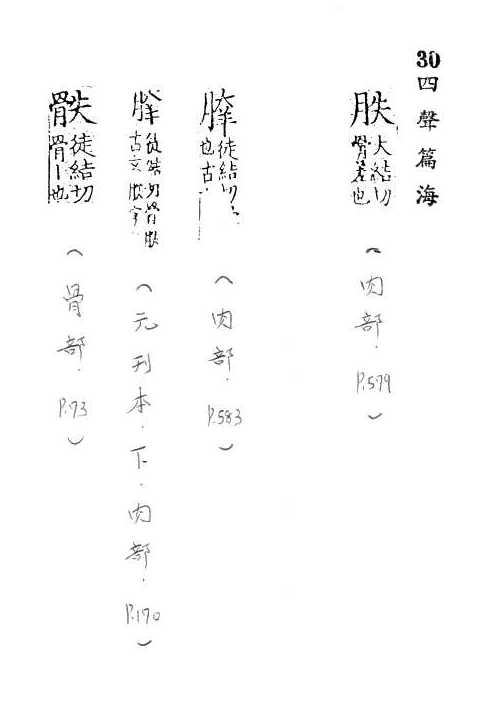 30四聲篇海
胅大結切骨差也
(肉部．P.579)
膟徒結切也古
(肉部．P.583)
古文胅字
(元刊本．下．肉部．P.170)
骨失徒結切骨｜也
(骨部．P.73)